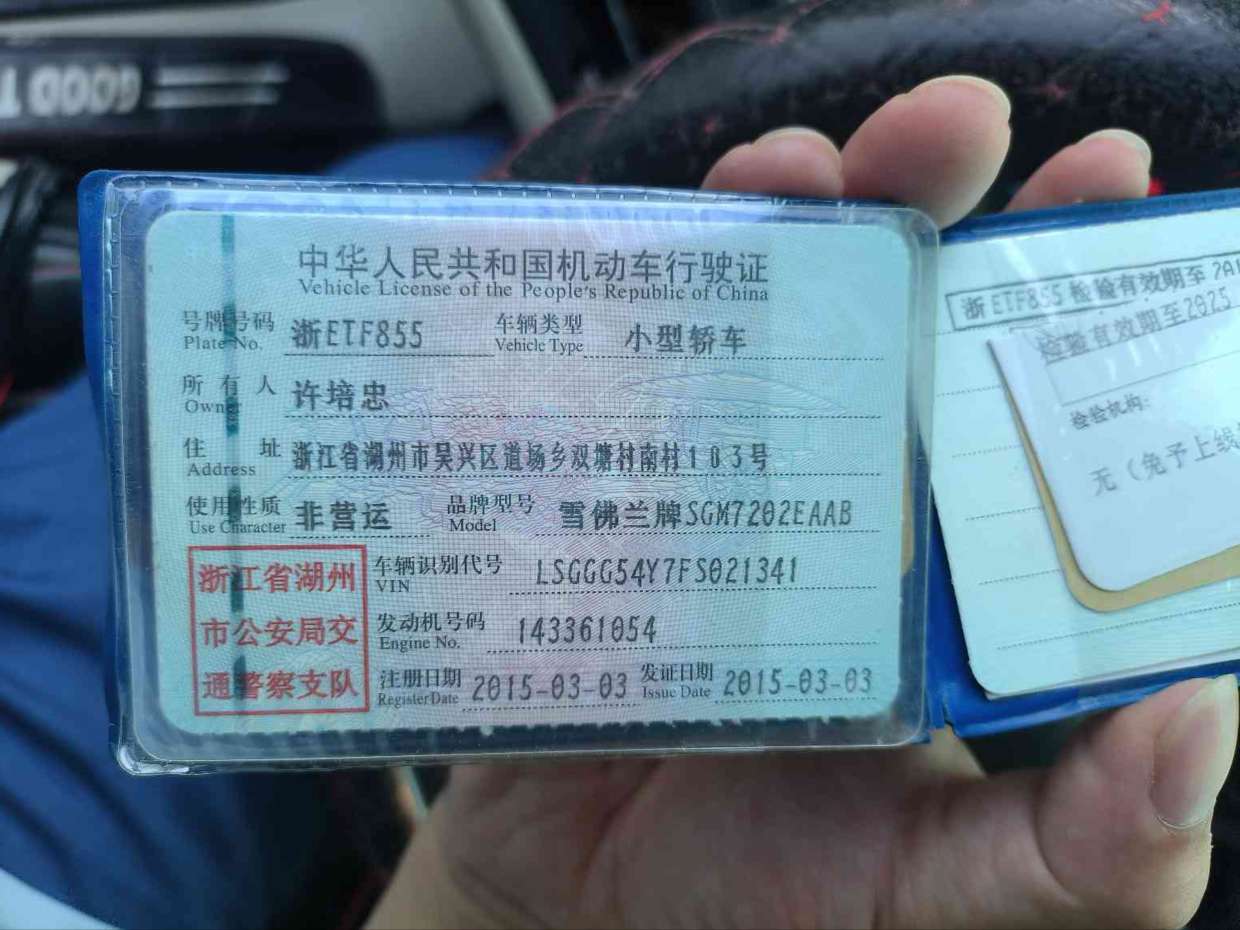 GOOD
中华人民共和国机动车行驶证
Vehicle License of the People's Republic of China
号牌号码 浙ETF855 车辆类型 小型轿车
Plate No. Vehicle Type
所有人 许培忠
Owner
住址 浙江省湖州市吴兴区道场乡双塘村南村103号
Address
使用性质 非营运 品牌型号 雪佛兰牌SGM7202EAAB
Use Character Model
浙江省湖州
市公安局交
通警察支队
车辆识别代号 LSGGG54Y7FS021341
VIN
发动机号码 143361054
Engine No.
注册日期 2015-03-03 发证日期 2015-03-03
Register Date Issue Date
浙ETF855 检验有效期至
检验有效期至2025
检验机构:
无(免予上线